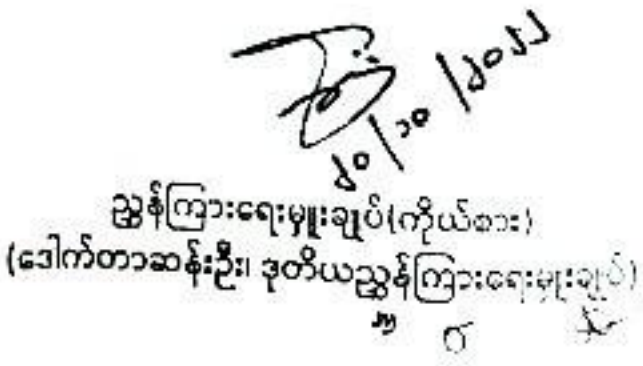 ၂၀/၁၀/၂၀၂၂
ညွှန်ကြားရေးမှူးချုပ်(ကိုယ်စား)
(ဒေါက်တာဆန်းဦး၊ ဒုတိယညွှန်ကြားရေးမှူးချုပ်)